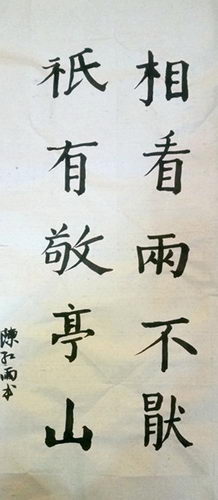 相看兩不猒
祇有敬亭山
陳紅雨書